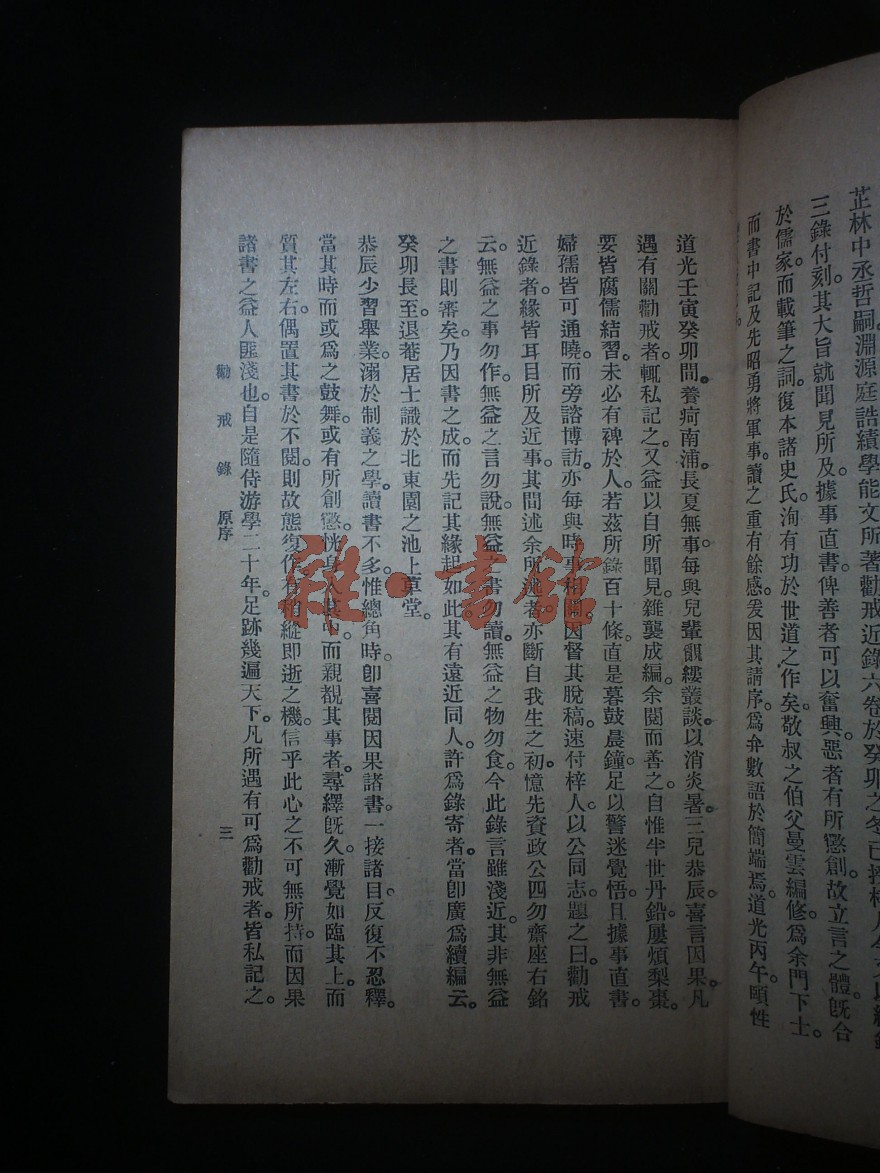 芷林中丞哲嗣。淵源庭誥。績學能文。所著勸戒近錄六卷。於癸卯之冬。已
三錄付刻。其大旨就聞見所及。據事直書。俾善者可以奮興。惡者有所懲創。故立言之體。既合
於儒家。而載筆之詞。復本諸史氏。洵有功於世道之作矣。敬叔之伯父曼雲編修。爲余門下士。
而書中記及先昭勇將軍事。讀之重有餘感。爰因其請序。爲弁數語於簡端焉。道光丙午頤性
道光壬寅癸卯間。養疴南浦。長夏無事。每與兒輩覼縷叢談。以消炎暑。三兒恭辰。喜言因果。凡
遇有關勸戒者。輒私記之。又益以自所聞見。雜襲成編。余閱而善之。自惟半世丹鉛。屢煩梨棗。
要皆腐儒結習。未必有裨於人。若茲所錄百十條。直是暮鼓晨鐘。足以警迷覺悟。且據事直書。
婦孺皆可通曉。而旁諮博訪。亦每與時事相關。因督其脫稿。速付梓人。以公同志。題之曰。勸戒
近錄者。緣皆耳目所及近事。其間述余所述者。亦斷自我生之初。憶先資政公四勿齋座右銘
云。無益之事勿作。無益之言勿說。無益之書勿讀。無益之物勿食。今此錄言雖淺近。其非無益
之書則審矣。乃因書之成。而先記其緣起如此。其有遠近同人。許爲錄寄者。當卽廣爲續編云。
癸卯長至。退菴居士識於北東園之池上草堂。
恭辰少習舉業。溺於制義之學。讀書不多。惟總角時。卽喜閱因果諸書。一接諸目。反復不忍釋。
當其時而或爲之鼓舞。或有所創懲。恍身入其中。而親覩其事者。尋繹既久。漸覺如臨其上。而
質其左右。偶置其書於不閱。則故態復作。有稍縱即逝之機。信乎此心之不可無所持。而因果
諸書之益人匪淺也。自是隨侍游學二十年。足跡幾遍天下。凡所遇有可爲勸戒者。皆私記之。
勸戒錄 原序 三
雜·書館